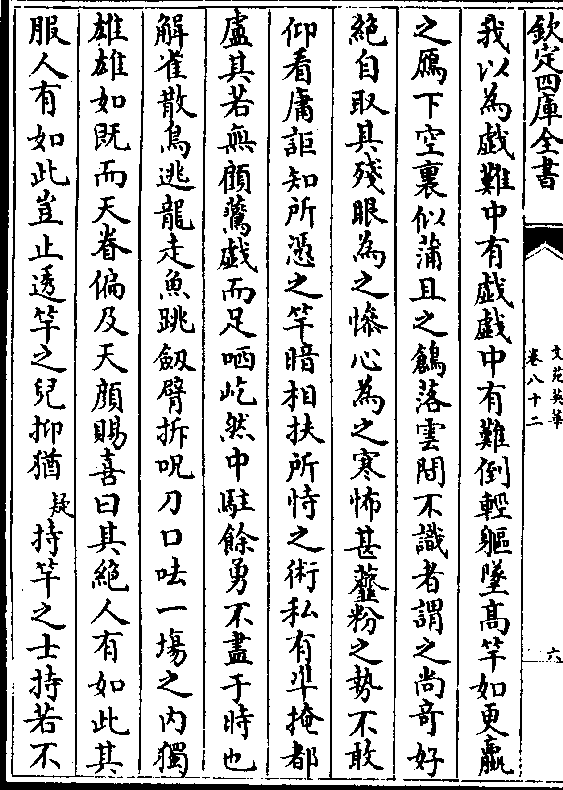 欽定四庫全書
文苑英華
卷八十二
六
我以為戯難中有戯戯中有難倒輕軀墜高竿如更羸
之鴈下空裏似蒲且之鶬落雲間不識者謂之尚竒好
絶自取其殘眼為之慘心為之寒怖甚虀粉之勢不敢
仰看庸詎知所憑之竿暗相扶所恃之術私有凖掩都
盧其若無顧鷰戯而足哂屹然中駐餘勇不盡于時也
解雀散鳥逃龍走魚跳劔臂拆呪刀口呿一塲之内獨
雄雄如既而天眷偏及天顔賜喜曰其絶人有如此其
服人有如此豈止透竿之兒抑猶疑持竿之士持若不